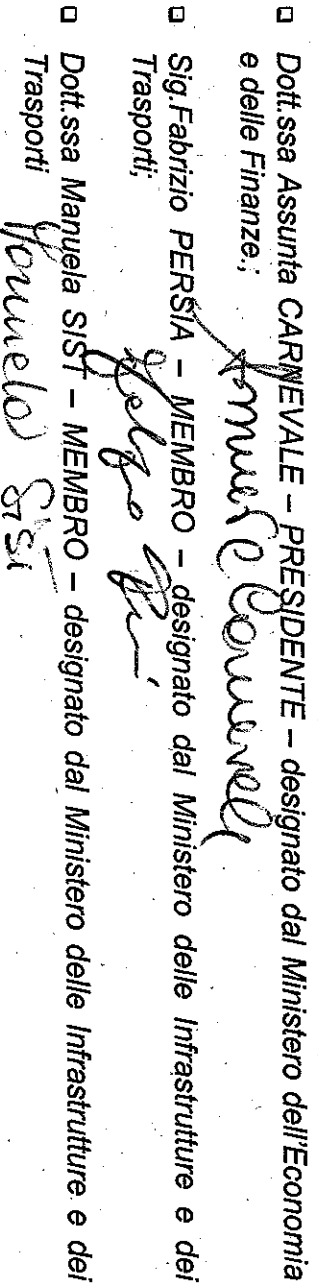 □ Dott.ssa Assunta CARNEVALE – PRESIDENTE – designato dal Ministero dell'Economia
e delle Finanze.;
□ Sig.Fabrizio PERSIA – MEMBRO – designato dal Ministero delle Infrastrutture e dei
Trasporti;
□ Dott.ssa Manuela SIST – MEMBRO – designato dal Ministero delle Infrastrutture e dei
Trasporti
Manuela Sist